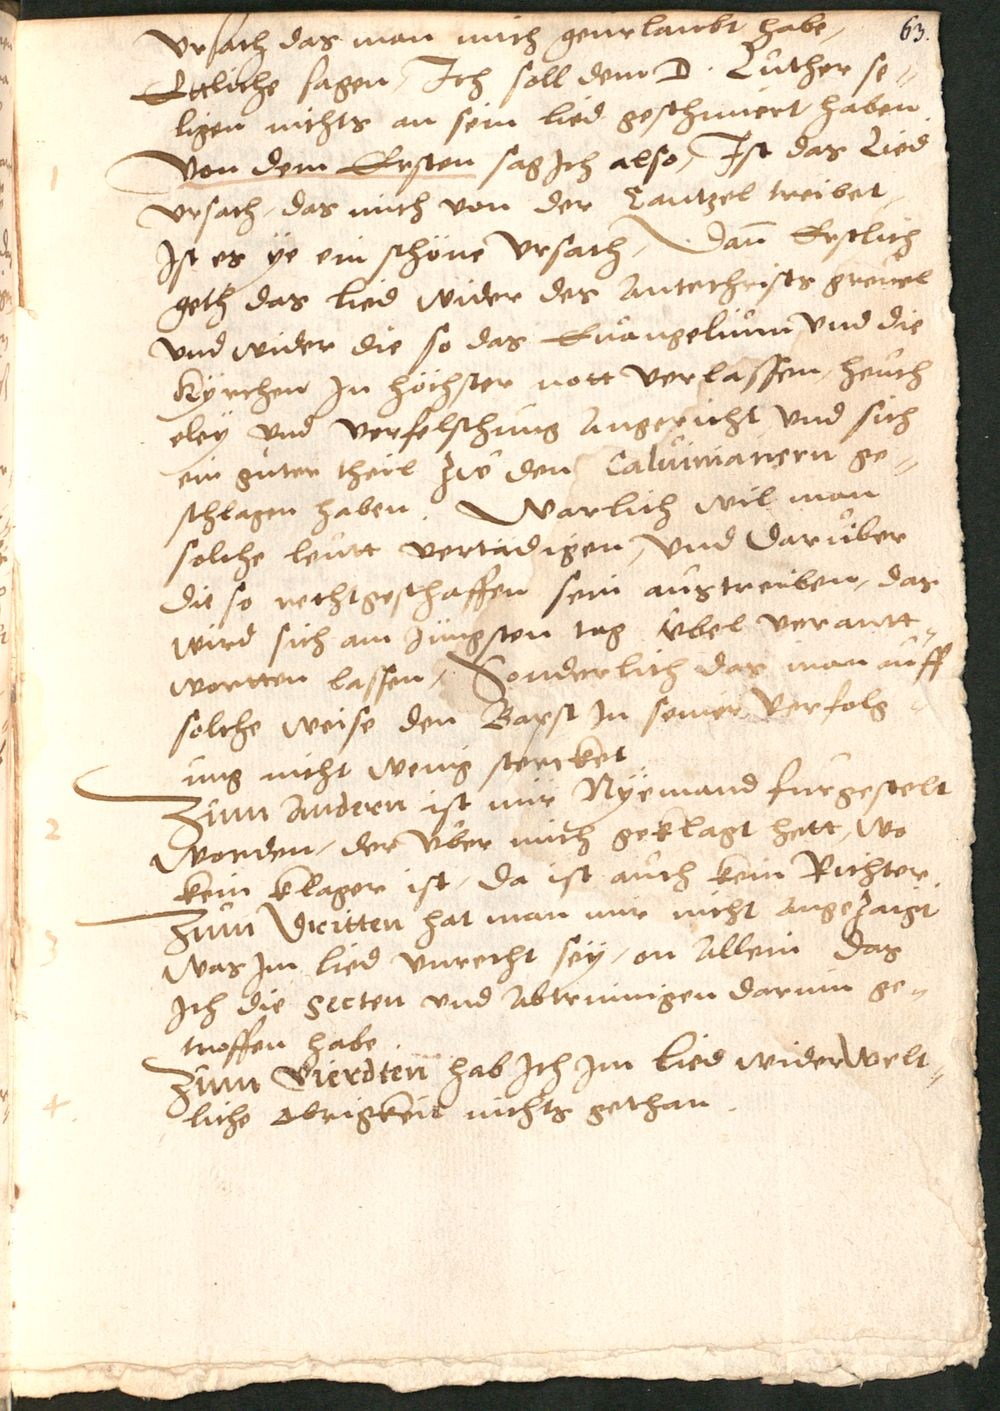 63.
Vrsach das man mich geurlaubt habe,
Ettliche sagen, Ich soll dem D. Luther se=
ligen nichts an sein lied geschmiert haben.
1 Von dem Ersten sag Ich also, Ist das Lied
vrsach, das mich von der Cantzel treibet,
Ist es ye ein schöne Vrsach, Dañ Erstlich
geth das lied wider des Antechrists greuel
vnd wider die so das Euangelium vnd die
Kyrchen In höchster nott verlassen, heuch
eley vnd verfelschung angericht vnd sich
ein guter theil zu den Caluinianern ge=
schlagen haben. Warlich wil man
solche leutt vertadigen, vnd daruber
die so rechtgeschaffen sein austreiben, das
wird sich am Jungsten tag vbel verantt=
wortten lassen, Sonderlich das man auff
solche weise den Bapst In seiner verfolg=
ung nicht wenig stercket
2 Zum Andern ist mir Nyemand furgestelt
worden, der vber mich geklagt hett, wo
kein klager ist, da ist auch kein Richter.
3 Zum Dritten hat man mir nicht angezaigt
was Im lied vnrecht sey, on Allein das
Ich die secten vnd Abtrinnigen darinn ge=
troffen habe.
4 Zum Vierdten hab Ich Im lied wider welt=
liche obrigkeit nichts gethan.